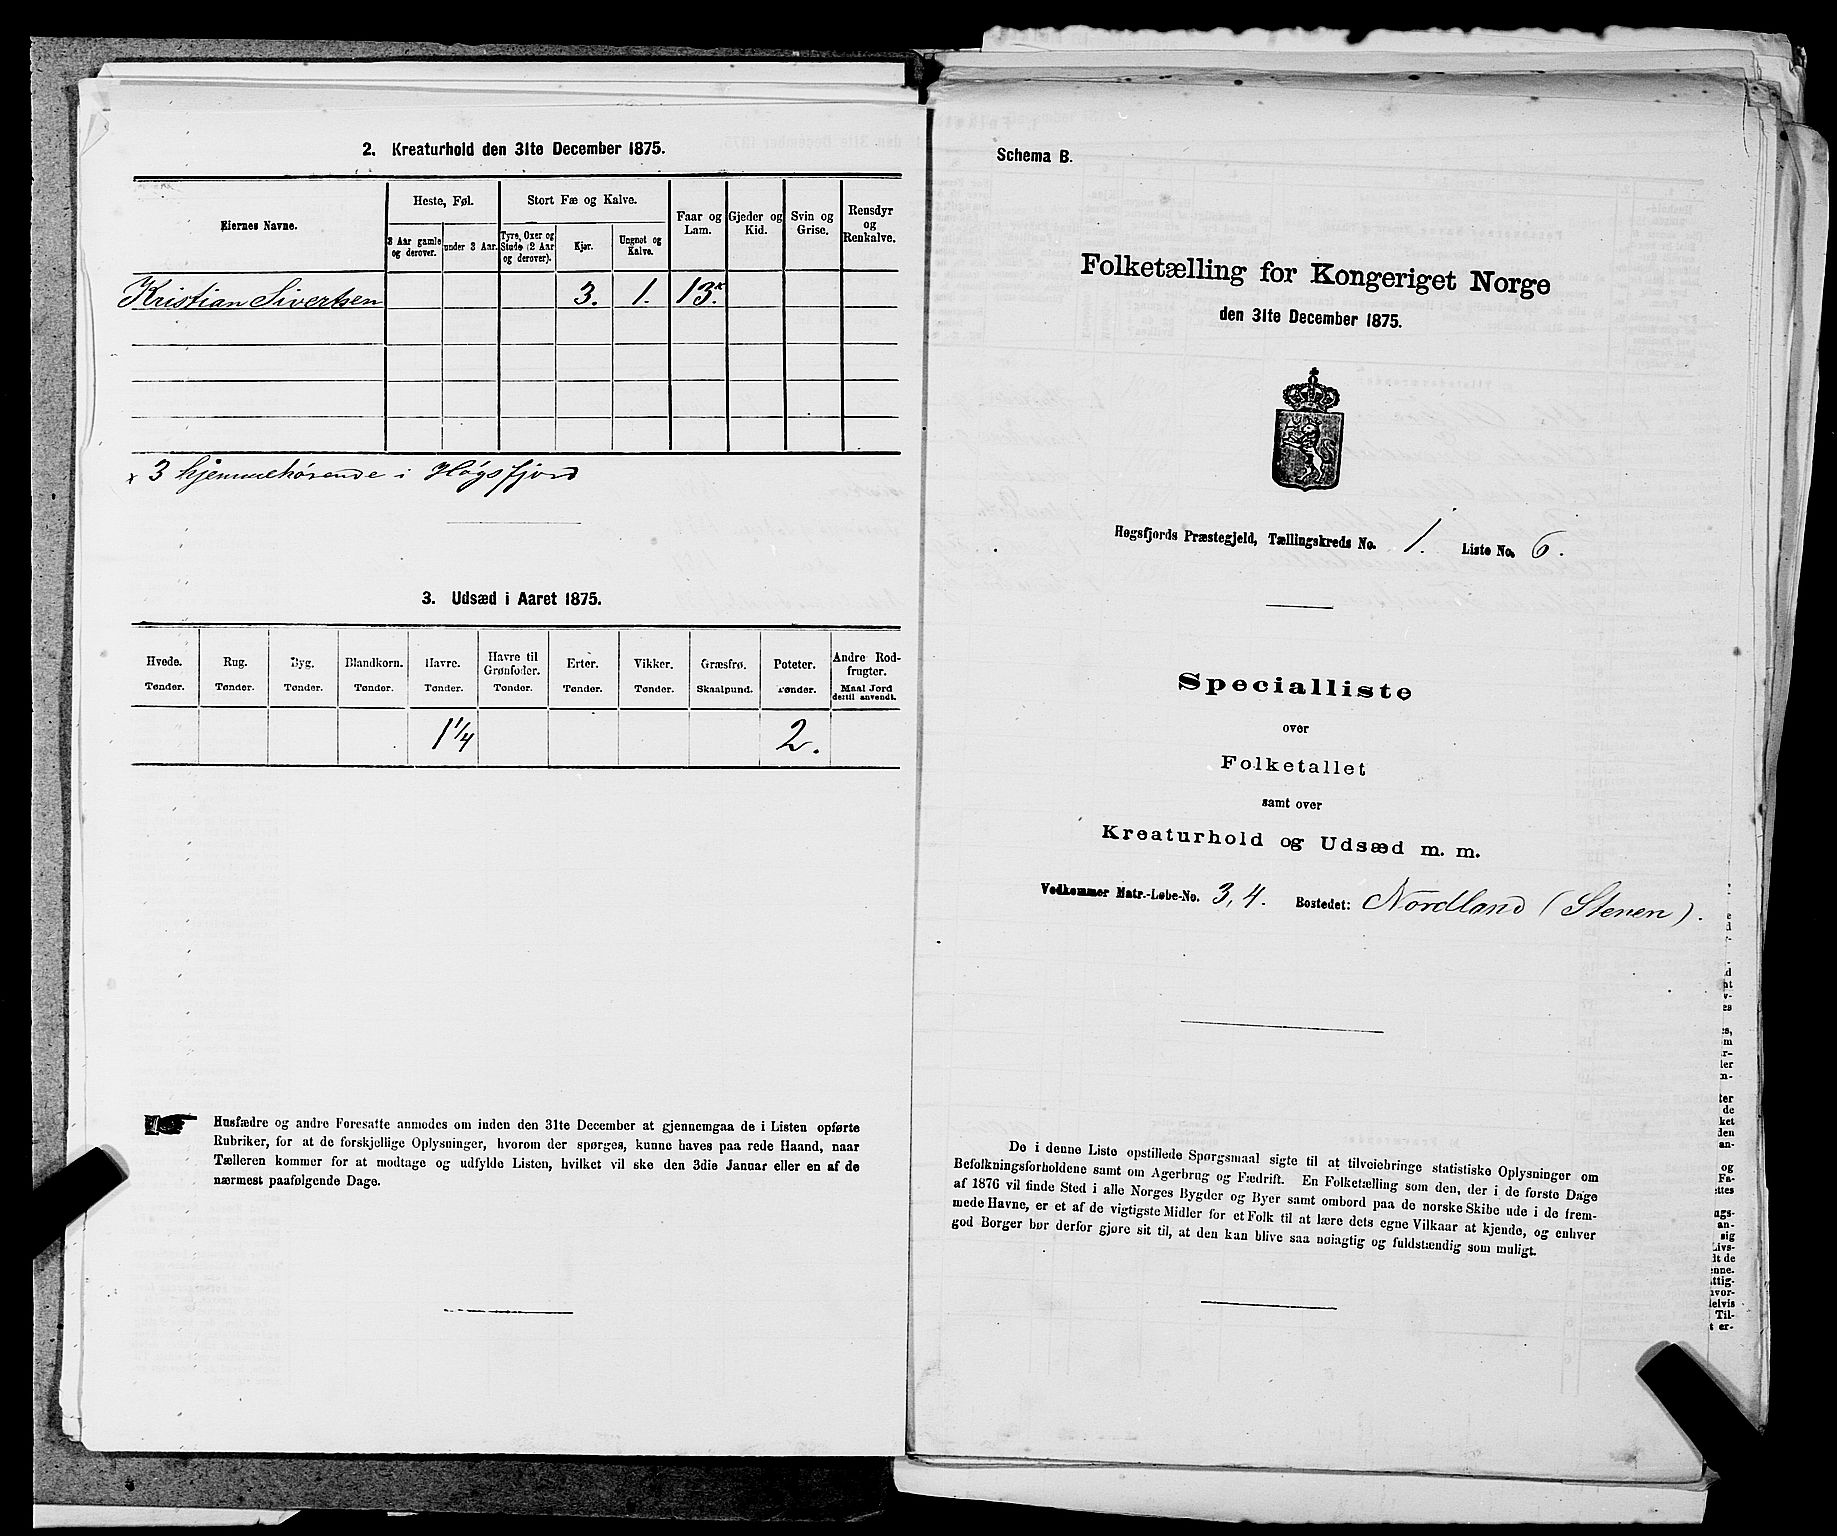 2. Kreaturhold den 31te December 1875.
Eiernes Navne.
Heste, Føl.
3 Aar gamle og derover.
under 3 Aar.
Stort Fæ og Kalve.
Tyre, Oxer og Stude (2 Aar og derover).
Kjør.
Ungnøt og Kalve.
Faar og Lam.
Gjeder og Kid.
Svin og Grise.
Rensdyr og Renkalve.
Kristian Sivertsen 3. 1. 13.x
x 3 hjemmehørende i Høgsfjord
3. Udsæd i Aaret 1875.
Hvede. Rug. Byg. Blandkorn. Havre. Havre til Grønfoder. Erter. Vikker. Græsfrø. Poteter. Andre Rodfrugter.
Tønder. Tønder. Tønder. Tønder. Tønder. Tønder. Tønder. Tønder. Skaalpund. Tønder. Maal Jord dertil anvendt.
1 1/4 2.
Husfædre og andre Foresatte anmodes om inden den 31te December at gjennemgaa de i Listen opførte
Rubriker, for at de forskjellige Oplysninger, hvorom der spørges, kunne haves paa rede Haand, naar
Tælleren kommer for at modtage og udfylde Listen, hvilket vil ske den 3die Januar eller en af de
nærmest paafølgende Dage.
Schema B.
Folketælling for Kongeriget Norge
den 31te December 1875.
Høgsfjords Præstegjeld, Tællingskreds No. 1. Liste No. 6.
Specialliste
over
Folketallet
samt over
Kreaturhold og Udsæd m. m.
Vedkommer Matr.-Løbe-No. 3, 4. Bostedet: Nordland (Stenen).
De i denne Liste opstillede Spørgsmaal sigte til at tilveiebringe statistiske Oplysninger om
Befolkningsforholdene samt om Agerbrug og Fædrift. En Folketælling som den, der i de første Dage
af 1876 vil finde Sted i alle Norges Bygder og Byer samt ombord paa de norske Skibe ude i de frem-
mede Havne, er et af de vigtigste Midler for et Folk til at lære dets egne Vilkaar at kjende, og enhver
god Borger bør derfor gjøre sit til, at den kan blive saa nøiagtig og fuldstændig som muligt.